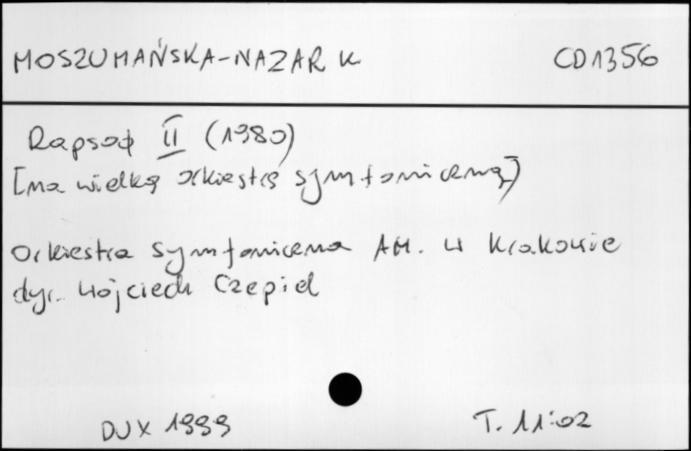 MOSZUMAŃSKA-NAZAR K
CD 1356
Rapsod II (1980)
[na wielką orkiestrę symfoniczną]
Orkiestra Symfoniczna AM. w Krakowie
dyr. Wojciech Czepiel
DUX 1999
T. 11:02